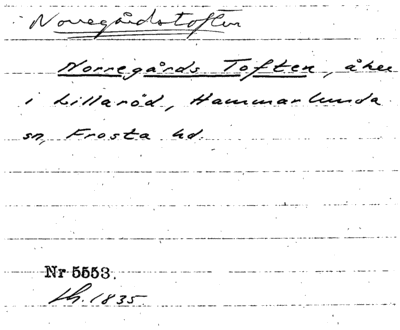 Norregårdstoften
Norregårds Toften, åker
i Lillaröd, Hammarlunda
sn, Frosta hd.
Nr 5553.
sk. 1835